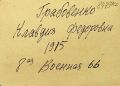 Грабовенко
Клавдия Федоровна
1915
8ая Военная 66